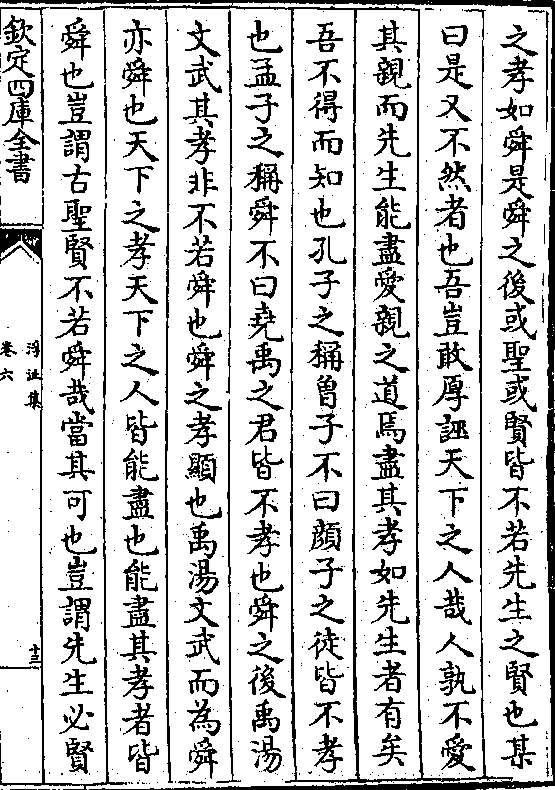 之孝如舜是舜之後或聖或賢皆不若先生之賢也某
曰是又不然者也吾豈敢厚誣天下之人哉人孰不愛
其親而先生能盡愛親之道焉盡其孝如先生者有矣
吾不得而知也孔子之稱曽子不曰顔子之徒皆不孝
也孟子之稱舜不曰堯禹之君皆不孝也舜之後禹湯
文武其孝非不若舜也舜之孝顯也禹湯文武而為舜
亦舜也天下之孝天下之人皆能盡也能盡其孝者皆
舜也豈謂古聖賢不若舜哉當其可也豈謂先生必賢
欽定四庫全書
浮沚集
卷六
十三